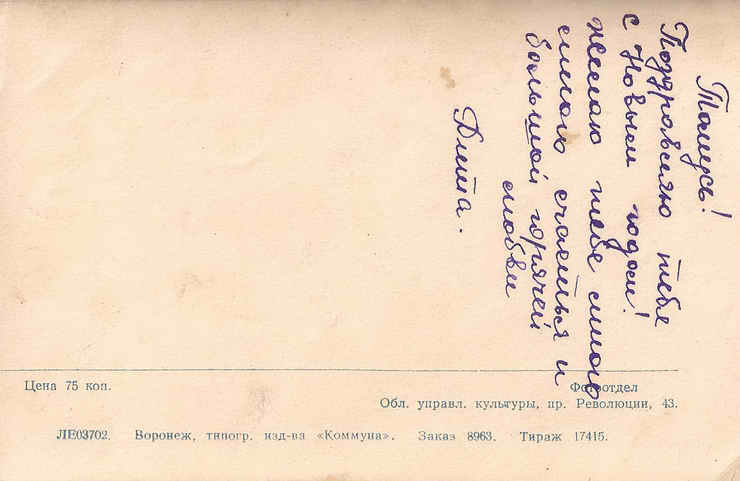 Томусь!
Поздравляю тебя
с Новым годом!
желаю тебе много
много счастья и
большой горячей
любви
Дита.
Цена 75 коп.
Фотоотдел
Обл. управл. культуры, пр. Революции, 43.
ЛЕ03702. Воронеж, типогр. изд-ва «Коммуна». Заказ 8963. Тираж 17415.